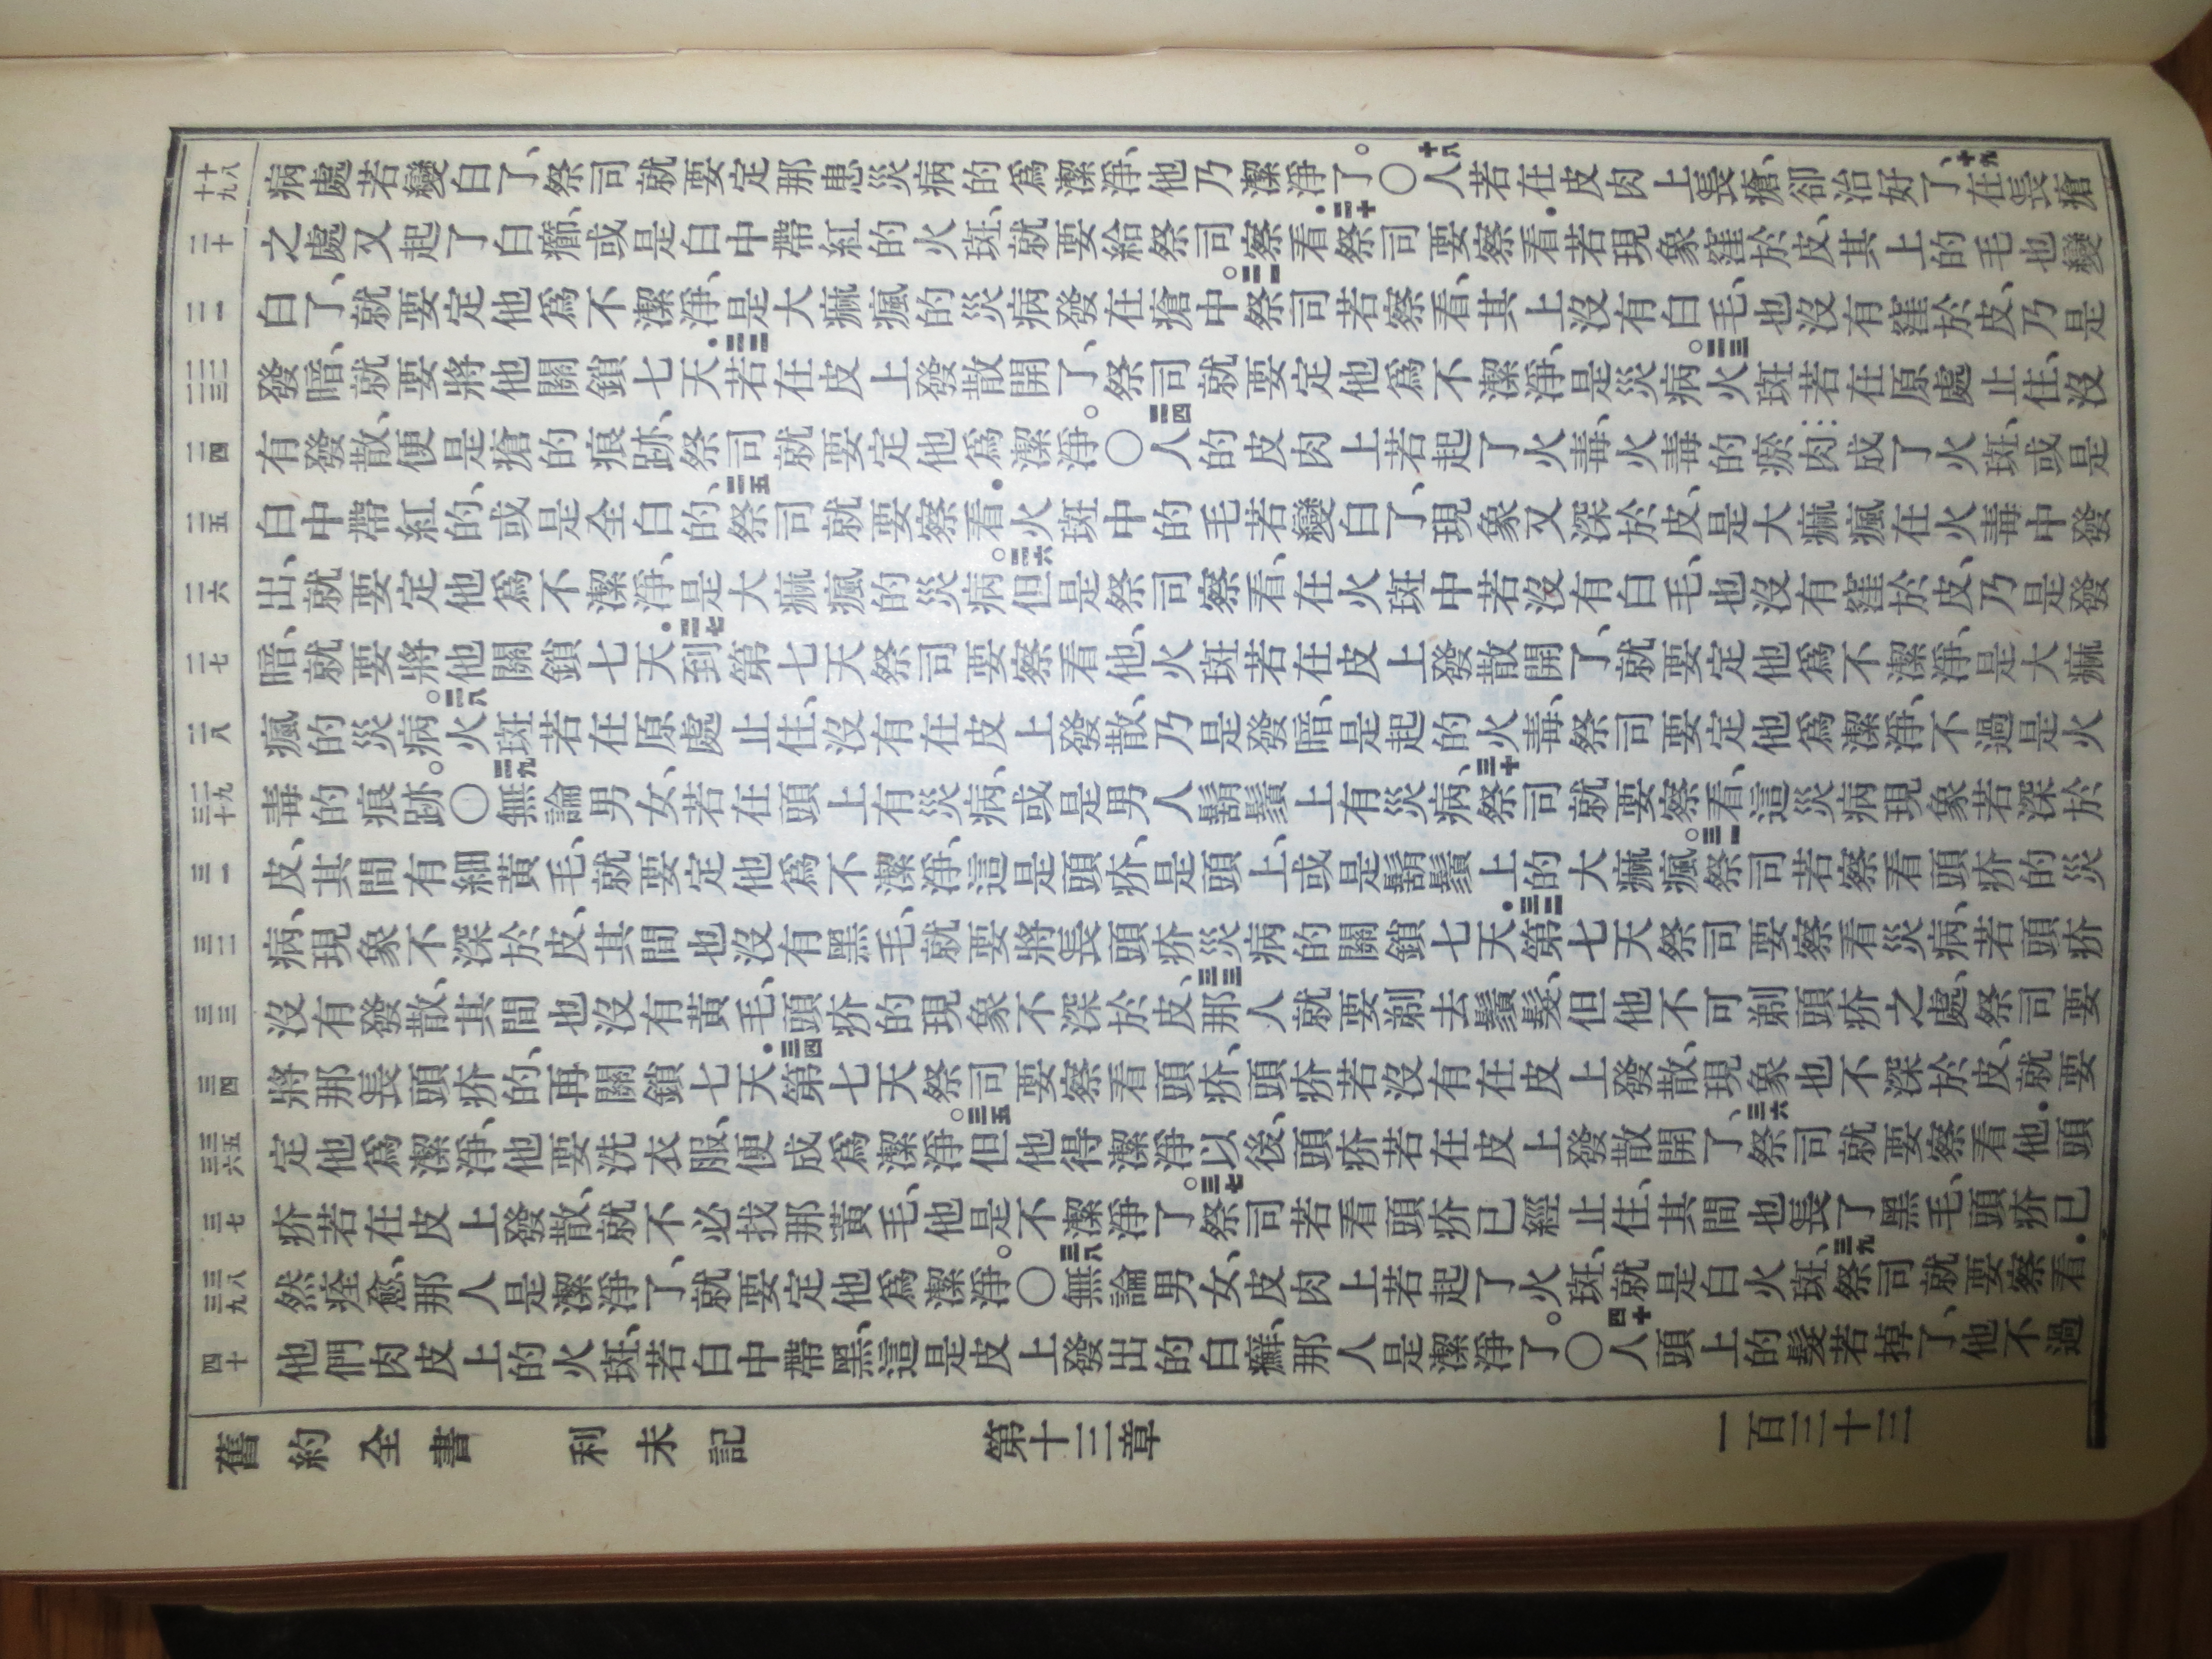 十八 十九
病處若變白了、祭司就要定那患災病的爲潔淨、他乃潔淨了。〇十八人若在皮肉上長瘡、卻治好了、十九在長瘡
二十
之處又起了白癤、或是白中帶紅的火斑、就要給祭司察看．二十祭司要察看．若現象窪於皮、其上的毛也變
二一
白了、就要定他爲不潔淨、是大痲瘋的災病發在瘡中。二一祭司若察看、其上沒有白毛、也沒有窪於皮、乃是
二二 二三
發暗、就要將他關鎖七天．二二若在皮上發散開了、祭司就要定他爲不潔淨、是災病。二三火斑若在原處止住、沒
二四
有發散、便是瘡的痕跡、祭司就要定他爲潔淨。〇二四人的皮肉上若起了火毒、火毒的瘀肉成了火斑、或是
二五
白中帶紅的、或是全白的、二五祭司就要察看．火斑中的毛若變白了、現象又深於皮、是大痲瘋在火毒中發
二六
出、就要定他爲不潔淨、是大痲瘋的災病。二六但是祭司察看、在火斑中若沒有白毛、也沒有窪於皮、乃是發
二七
暗、就要將他關鎖七天．二七到第七天祭司要察看他、火斑若在皮上發散開了、就要定他爲不潔淨、是大痲
二八
瘋的災病。二八火斑若在原處止住、沒有在皮上發散、乃是發暗、是起的火毒、祭司要定他爲潔淨、不過是火
二九 三十
毒的痕跡。〇二九無論男女、若在頭上有災病、或是男人鬍鬚上有災病、三十祭司就要察看、這災病現象若深於
三一
皮、其間有細黃毛、就要定他爲不潔淨、這是頭疥、是頭上、或是鬍鬚上的大痲瘋。三一祭司若察看頭疥的災
三二
病、現象不深於皮、其間也沒有黑毛、就要將長頭疥災病的關鎖七天．三二第七天祭司要察看災病、若頭疥
三三
沒有發散、其間也沒有黃毛、頭疥的現象不深於皮、三三那人就要剃去鬚髮、但他不可剃頭疥之處、祭司要
三四
將那長頭疥的、再關鎖七天．三四第七天祭司要察看頭疥、頭疥若沒有在皮上發散、現象也不深於皮、就要
三五 三六
定他爲潔淨、他要洗衣服、便成爲潔淨。三五但他得潔淨以後、頭疥若在皮上發散開了、三六祭司就要察看他．頭
三七
疥若在皮上發散、就不必找那黃毛、他是不潔淨了。三七祭司若看頭疥已經止住、其間也長了黑毛、頭疥已
三八 三九
然痊愈、那人是潔淨了、就要定他爲潔淨。〇三八無論男女、皮肉上若起了火斑、就是白火斑、三九祭司就要察看．
四十
他們肉皮上的火斑、若白中帶黑、這是皮上發出的白癬、那人是潔淨了。〇四十人頭上的髮若掉了、他不過
舊約全書 利未記 第十三章 一百三十三